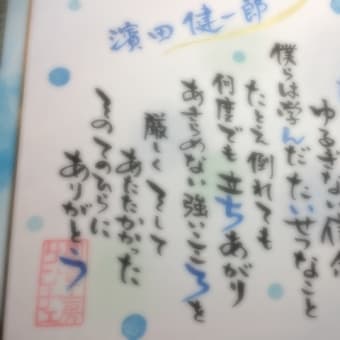 濱田健一郎
ゆるぎない信
僕らは学んだたいせつなこと
たとえ倒れても
何度でも立ちあがり
あきらめない強いこころを
厳しくそして
あたたかかった
そのてのひらに
ありがとう